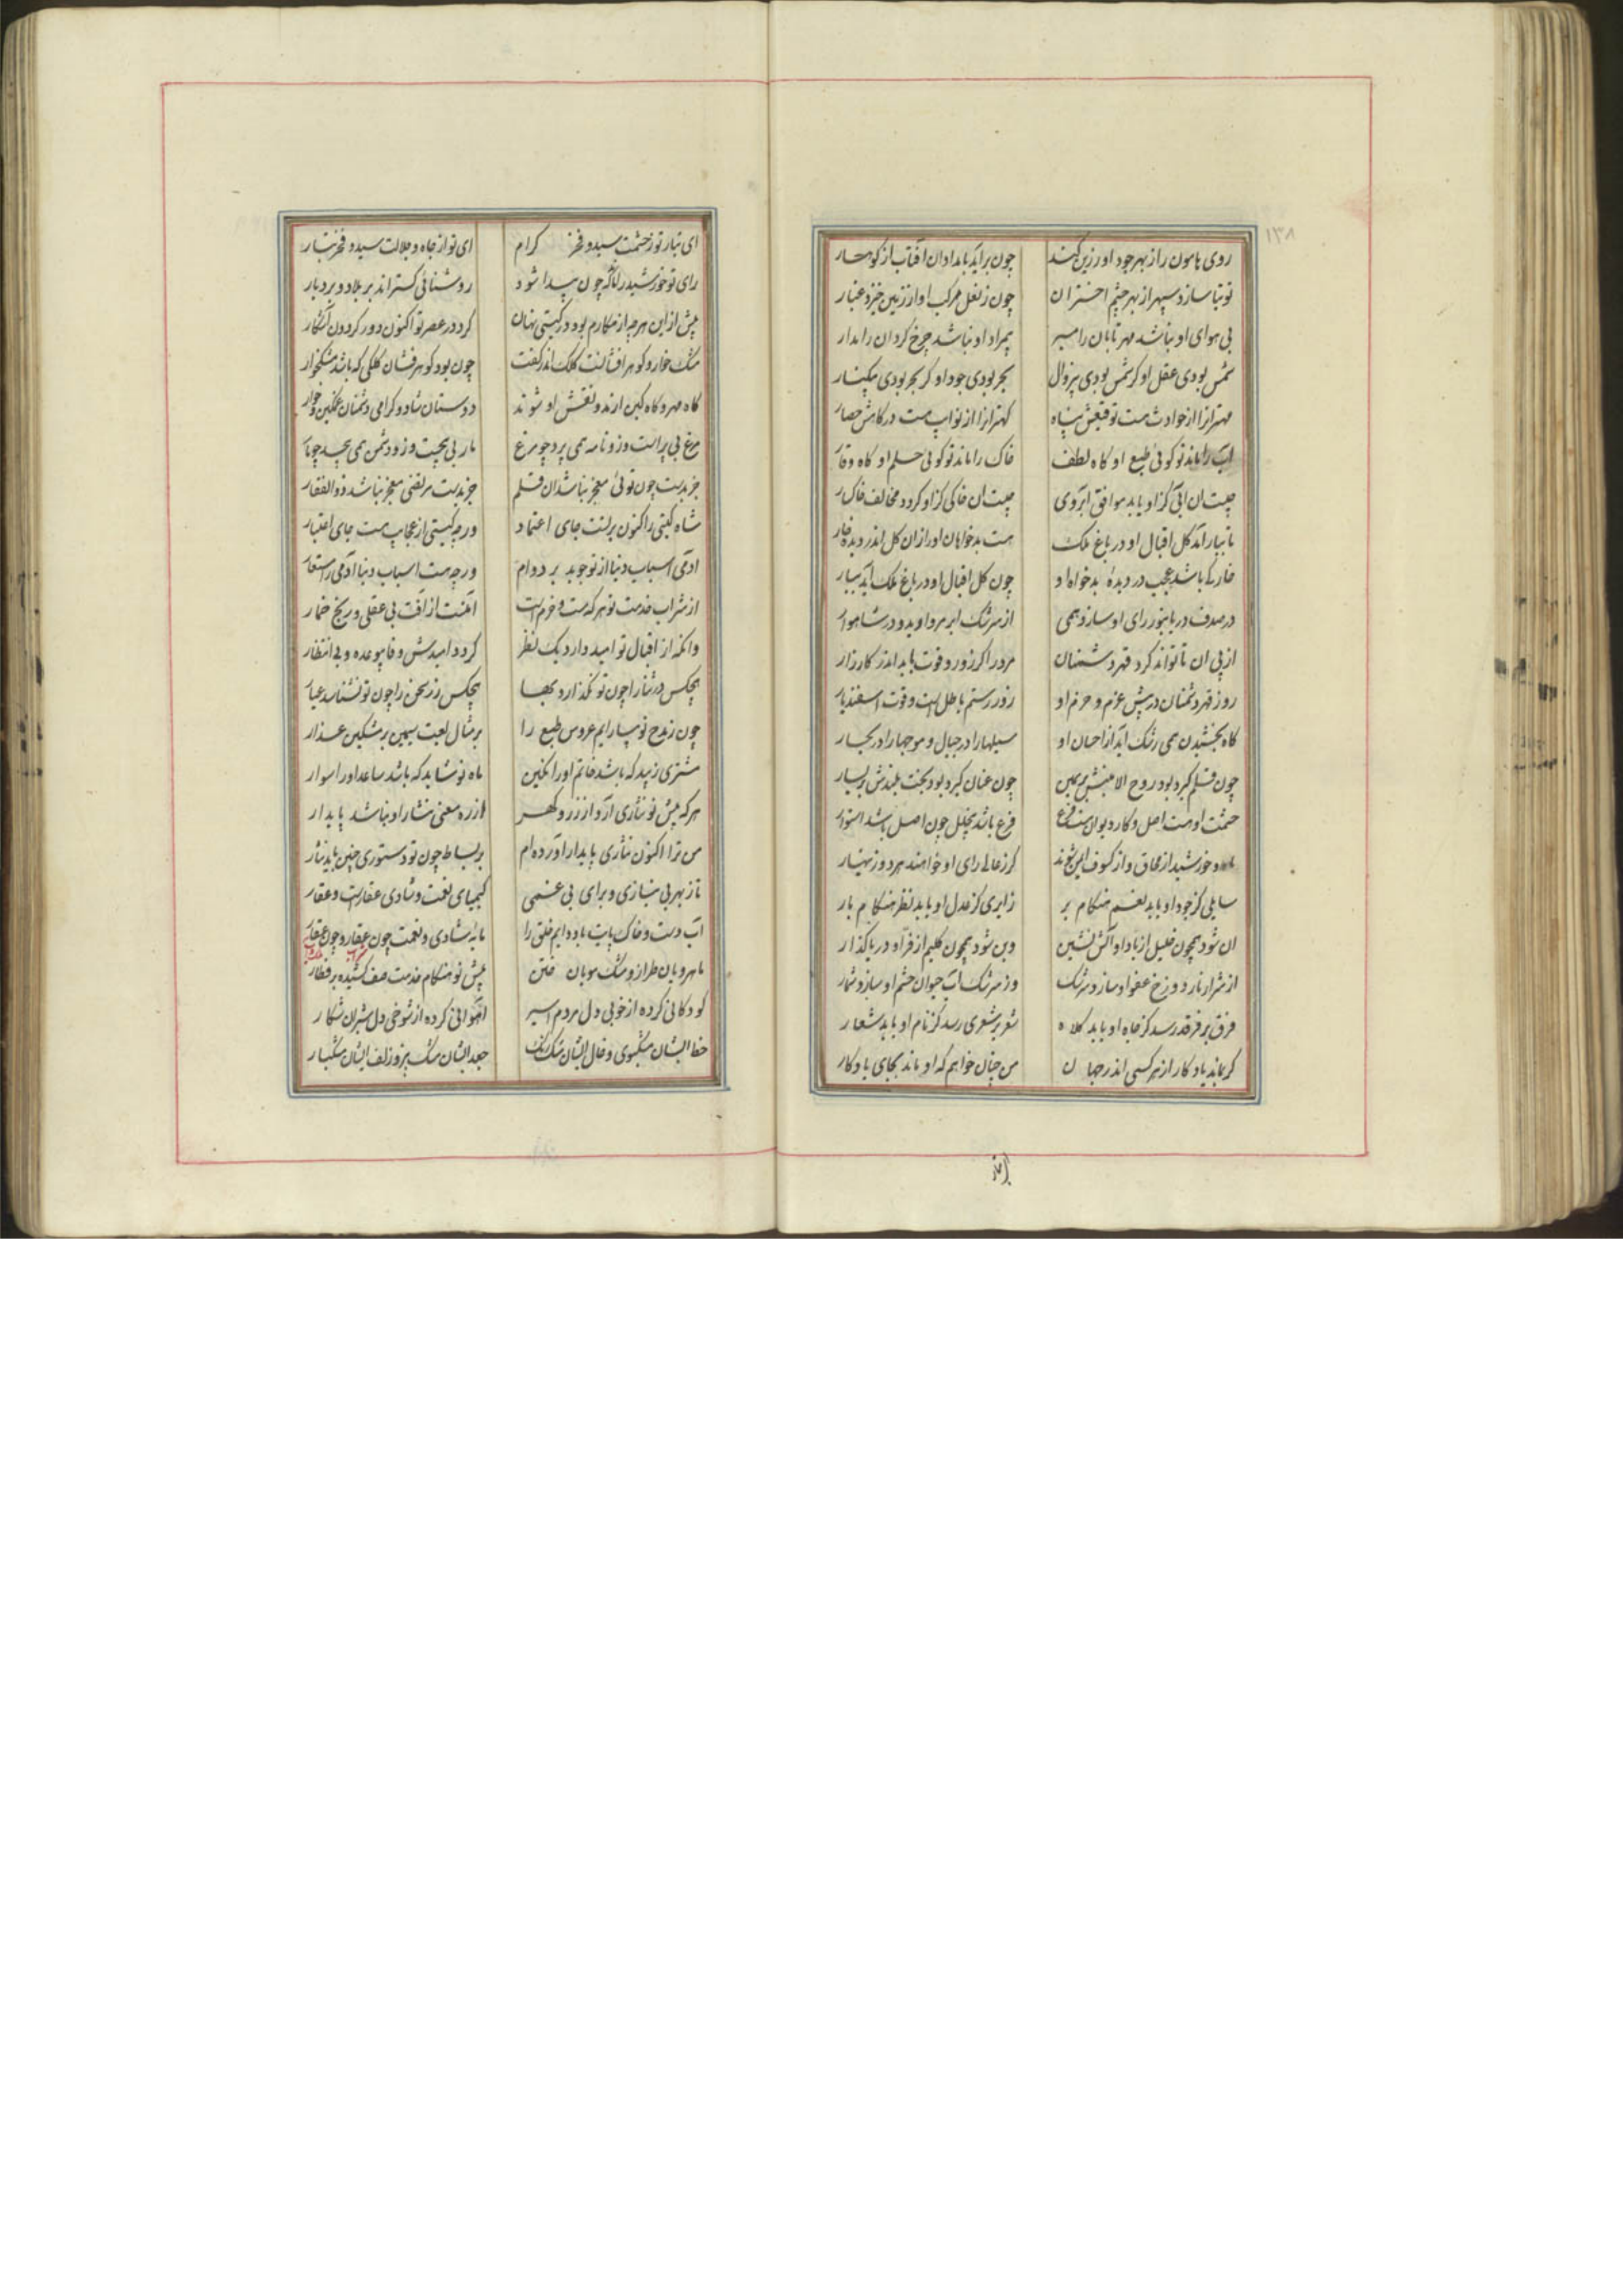 ۱۳۸
روی هامون را ز بهر جود او زرین کند چون براید بامدادان آفتاب از کوهسار
توتیا سازد سپهر از بهر چشم اختران چون ز نعل مرکب او از زمین خیزد غبار
بی هوای او نباشد مهر تابان را مسیر بیمراد او نباشد چرخ کردان را مدار
شمس بودی عقل او کر شمس بودی بیزوال بحر بودی جود او کر بحر بودی بیکنار
مهترانرا از حوادث هست توقیعش پناه کهترانرا از نوایب هست درکاهش حصار
آب را ماند تو کوئی طبع او کاه لطف خاک را ماند تو کوئی حلم او کاه وقار
چیست ان آبی کزاو یابد موافق آبروی چیست ان خاکی کزاو کردد مخالف خاکسار
تا ببار آمد کل اقبال او در باغ ملک هست بدخواهان اورا زان کل اندر دیده خار
خار کی باشد عجب در دیدهٔ بدخواه او چون کل اقبال او در باغ ملک آید ببار
در صدف دریا بنور رای او سازد همی از سرشک ابر مروارید و در شاهوار
از پی ان تا تواند کرد قهر دشمنان مرد را کر زور و قوت باید اندر کارزار
روز قهر دشمنان در پیش عزم و حزم او زور رستم باطل است و قوت اسفندیار
کاه بخشیدن همی رشک آید از احسان او سیلهارا در جبال و موجهارا در بحار
چون قلم کیرد بود روح الامینش بر یمین چون عنان کیرد بود بخت بلندش بر یسار
حشمت او هست اصل و کار دیوان هست فرع فرع باشد بیخلل چون اصل باشد استوار
ماه و خورشید از محاق و از کسوف ایمن شوند کر ز عالی رای او خواهند هر دو زینهار
سایلی کز جود او یابد نعم هنکام بر زایری کز عدل او یابد نظر هنکام بار
ان شود همچون خلیل از باد او آتش نشین وین شود همچون کلیم از فر او دریا کذار
از شرار نار دوزخ عفو او سازد سرشک وز سرشک آب حیوان خشم او سازد شرار
فرق بر فرقد رسد کز جاه او یابد کلاه شعر بر شعری رسد کز نام او یابد شعار
کر بماند یادکار از هر کسی اندر جهان من چنان خواهم که او ماند بجای یادکار
ای تبار تو ز حشمت سید و فخر کرام ای تو از جاه و جلالت سید و فخر تبار
رای تو خورشید را ماند که چون پیدا شود روشنائی کستراند بر بلاد و بر دیار
پیش از این هر چه از مکارم بود در کیتی نهان کرد در عصر تو اکنون دور کردون آشکار
مشک خوار و کوهر افشانست کلک اندر کفت چون بود کوهر فشان کلکی که باشد مشکخوار
کاه مهر و کاه کین ازند و نقش او شوند دوستان شاد و کرامی دشمنان غمکین و خوار
مرغ بی پر است وز و نامه همی پرد چو مرغ مار بی پیچست وز و دشمن همی پیچد چو مار
جز بدست چون توئی معجز نباشد ان قلم جز بدست مرتضی معجز نباشد ذوالفقار
شاه کیتی را کنون بر تست جای اعتماد ورچه کیتی از عجایب هست جای اعتبار
ادمی اسباب دنیا از تو جوید بر دوام ورچه هست اسباب دنیا آدمی را مستعار
از شراب خدمت تو هر که مست و خرم است ایمنست از آفت بی عقلی و رنج خمار
وانکه از اقبال تو امید دارد یک نظر کردد امیدش وفا بیوعده و بی انتظار
هیچکس در ثنا را چون تو نکذارد بها هیچکس زر سخن را چون تو نشناسد عیار
چون ز مدح تو بیارایم عروس طبع را بر مثال لعبت سیمین بر مشکین عذار
مشتری زیبد که باشد خاتم اورا نکین ماه نو شاید که باشد ساعد اورا سوار
هر که پیش تو نثاری آرد از زر و کهر از ره معنی نثار او نباشد پایدار
من ترا اکنون نثاری پایدار آورده ام بر بساط چون تو دستوری چنین باید نثار
تا ز بهر بی نیازی و برای بی غمی کیمیای نعمت و شادی عقارست و عقار
آب دست و خاک پایت باد دایم خلق را مایهٔ شادی و نعمت چون عقار و چون عقار
ماهرویان طراز و مشک مویان ختن پیش تو هنکام خدمت صف کشیده بر قطار
کودکانی کرده از خوبی دل مردم اسیر آهوانی کرده از شوخی دل شیران شکار
خط ایشان مشکبوی و خال ایشان مشک رنک جعد ایشان مشک بیز و زلف ایشان مشکبار